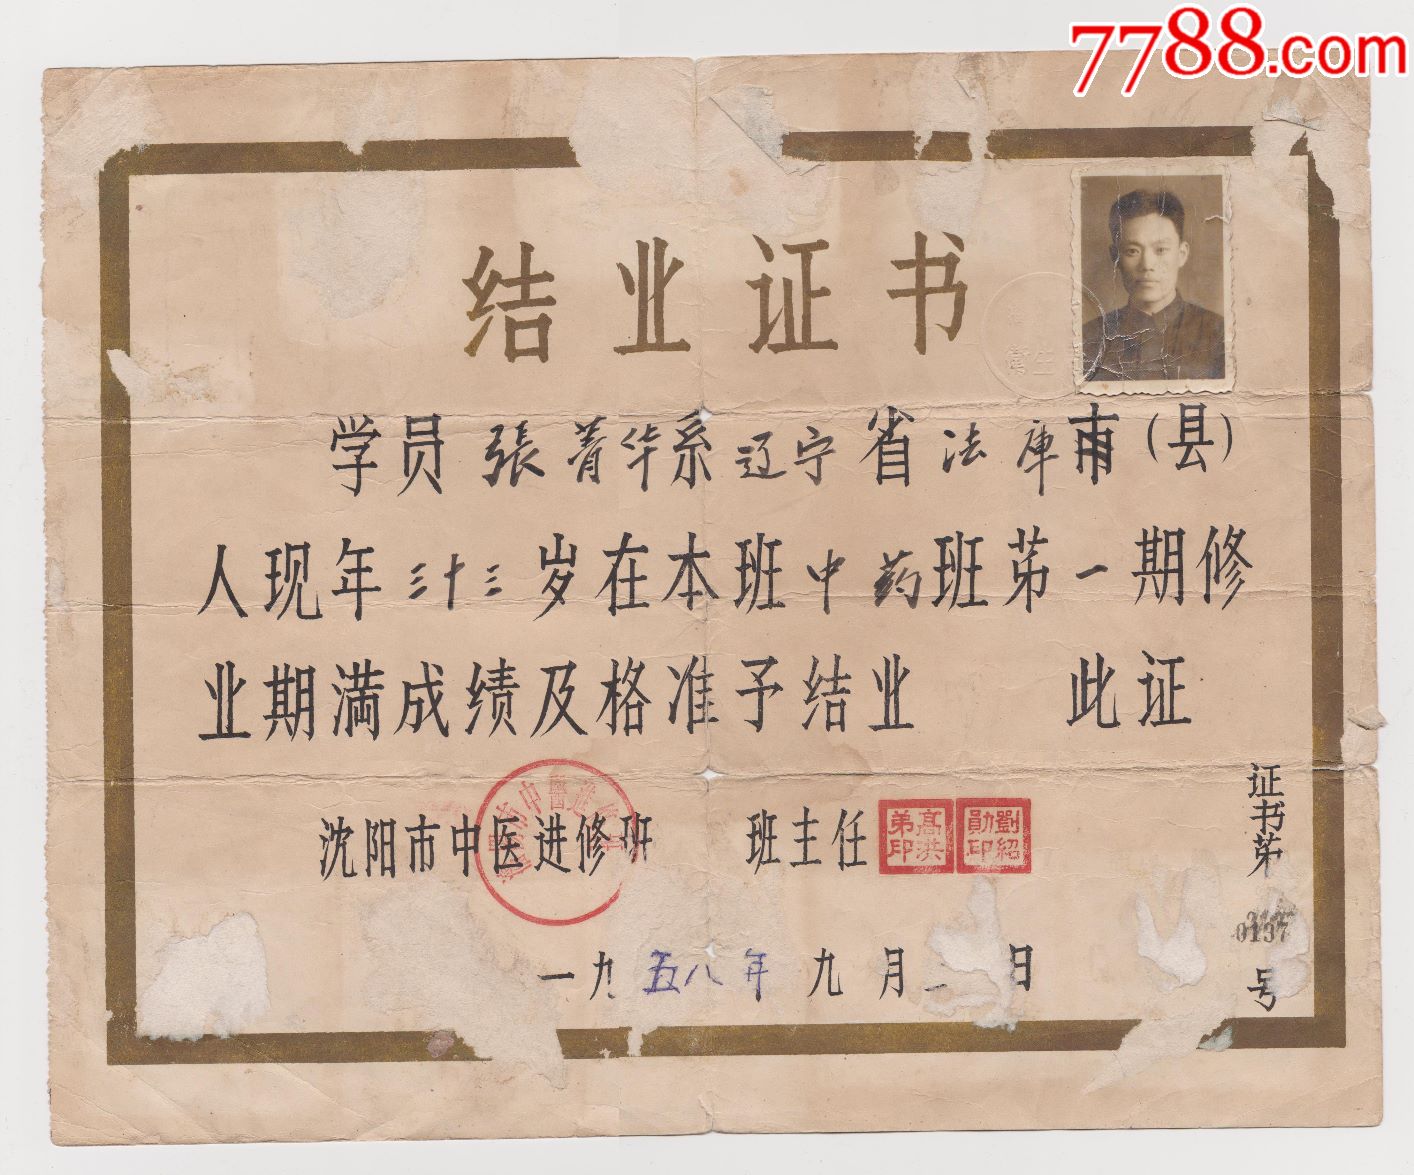 7788.com
结业证书
学员張菁华系辽宁省法庫市(县)
人现年三十三岁在本班中药班第一期修
业期满成绩及格准予结业 此证
沈阳市中医进修班 班主任
高洪弟印
劉紹勛印
一九五八年九月 日
证书第0137号